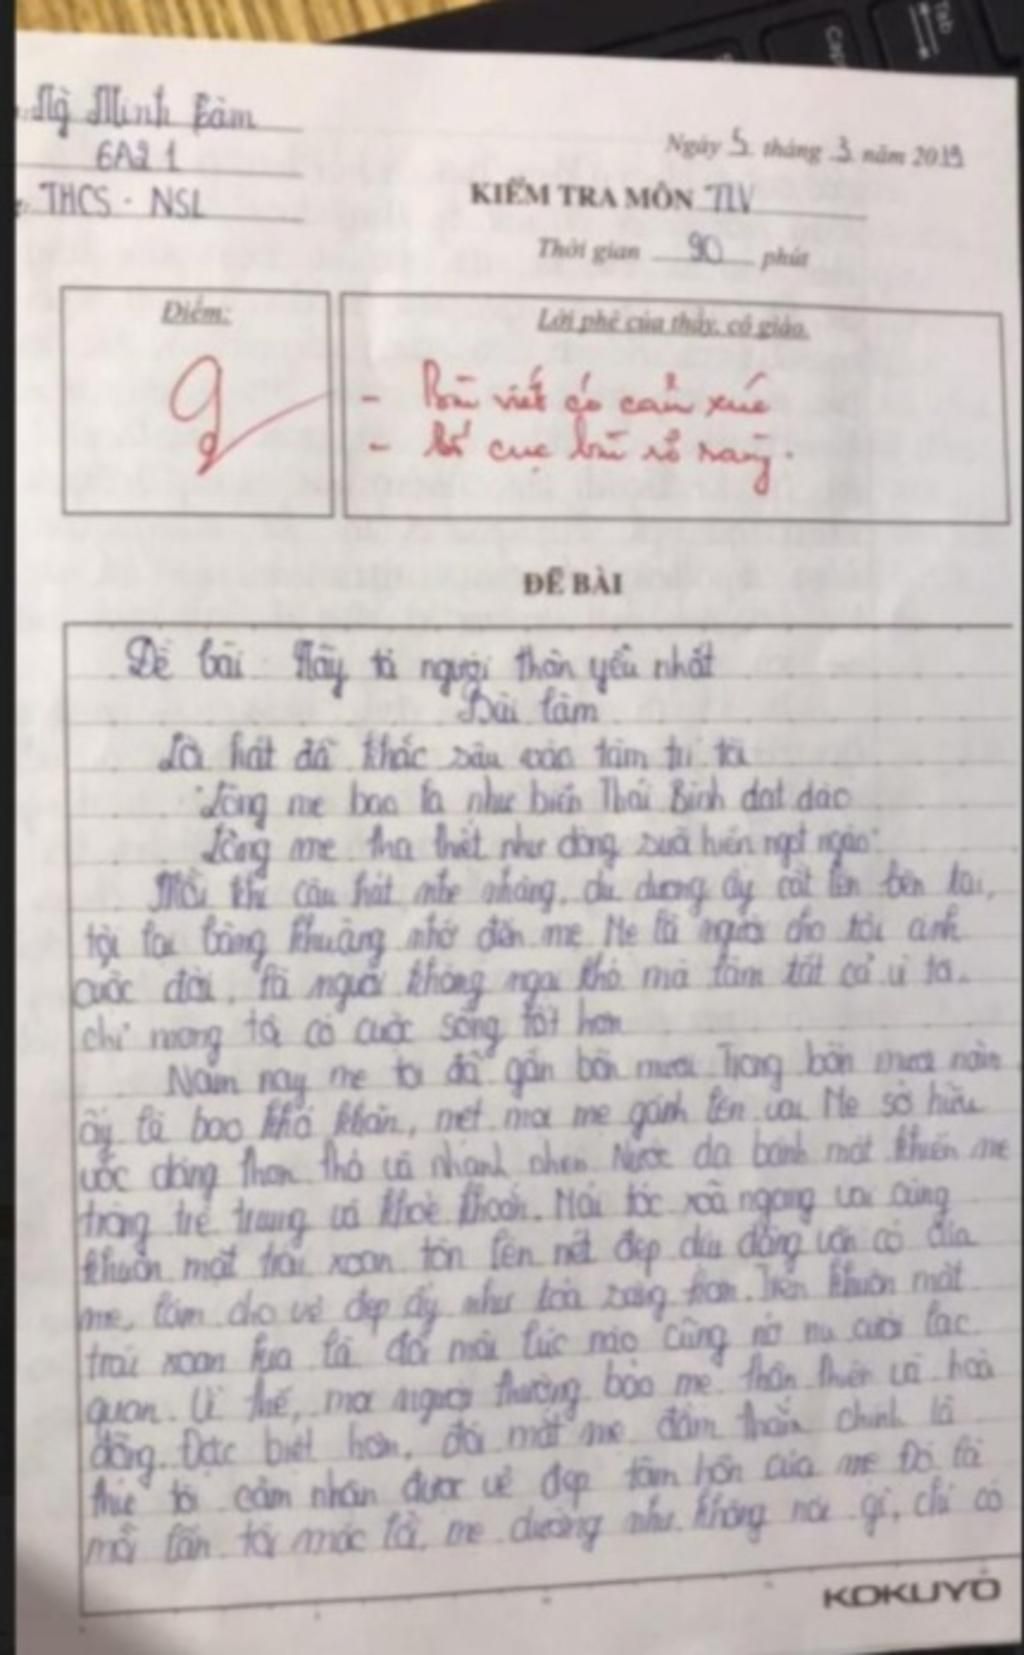 Tab
Cap
Ngô Minh
6A2 1
THCS - NSL
Ngày 5 tháng 3 năm 2019
KIỂM TRA MÔN TLV
Thời gian 90 phút
Điểm:
9
Lời phê của thầy, cô giáo.
- Bài viết có cảm xúc
- Bố cục bài rõ ràng.
ĐỀ BÀI
Đề bài: Hãy tả người thân yêu nhất
Bài làm
Lời hát đã khắc sâu vào tâm trí tôi
"Lòng mẹ bao la như biển Thái Bình dạt dào
Lòng mẹ tha thiết như dòng suối hiền ngọt ngào"
Mỗi khi câu hát nhẹ nhàng, du dương ấy cất lên bên tai,
tôi lại bâng khuâng nhớ đến mẹ. Mẹ là người cho tôi ánh
cuộc đời, là người không ngại khó mà làm tất cả vì tôi.
chỉ mong tôi có cuộc sống tốt hơn
Năm nay mẹ tôi đã gần bốn mươi. Trong bốn mươi năm
ấy là bao khó khăn, mệt mỏi mẹ gánh lên vai. Mẹ sở hữu
vóc dáng thon thả và nhanh nhẹn. Nước da bánh mật khiến mẹ
trông trẻ trung và khoẻ khoắn. Mái tóc xoã ngang vai cùng
khuôn mặt trái xoan tôn lên nét đẹp dịu dàng vốn có của
mẹ, làm cho vẻ đẹp ấy như toả sáng hơn. Trên khuôn mặt
trái xoan kia là đôi môi lúc nào cũng nở nụ cười lạc
quan. Vì thế, mọi người thường bảo mẹ thân thiện và hoà
đồng. Đặc biệt hơn, đôi mắt mẹ đằm thắm chính là
thứ tôi cảm nhận được vẻ đẹp tâm hồn của mẹ. Đó là
mỗi lần tôi mắc lỗi, mẹ dường như không nói gì, chỉ có
KOKUYO